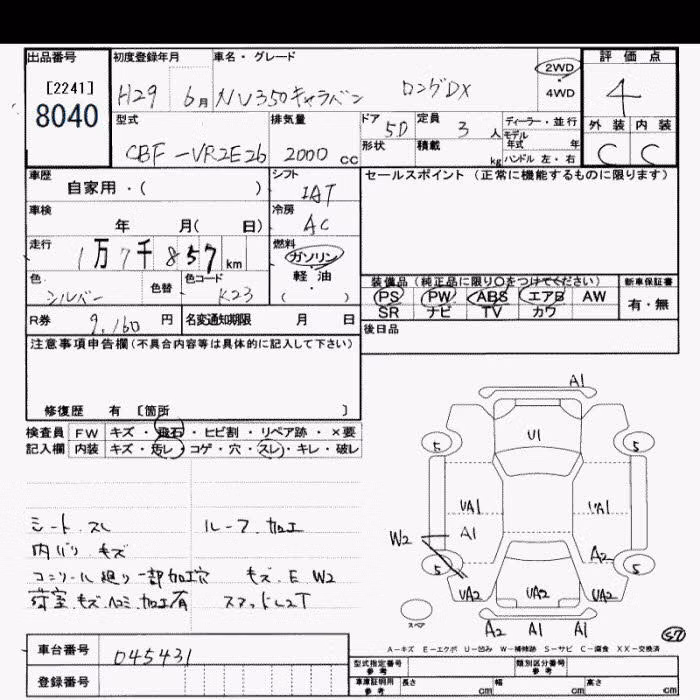 出品番号 初度登録年月 車名・グレード 評価点
[2241]
8040
H29 6月 NV350キャラバン ロングDX 2WD 4WD 4
型式 排気量 ドア 5D 定員 3 人 ディーラー・並行 外装 内装
モデル年式 年
CBF-VR2E26 2000 cc 形状 積載 kg ハンドル 左・右 C C
車歴 シフト セールスポイント (正常に機能するものに限ります)
自家用・( ) IAT
車検 冷房
年 月( 日) AC
走行 燃料
1万7千857 km ガソリン
軽・油
・( )
色 色替 色コード 装備品 (純正品に限り○をつけてください) 新車保証書
シルバー K23 PS PW ABS エアB AW 有・無
SR ナビ TV カワ
R券 9,160 円 名変通知期限 月 日 後日品
注意事項申告欄(不具合内容等は具体的に記入して下さい)
修復歴 有 [箇所 ]
検査員 FW キズ・飛石・ヒビ割・リペア跡・×要
記入欄 内装 キズ・汚レ・コゲ・穴・スレ・キレ・破レ
A1
U1
S S
UA1 UA1
A1
W2 A2
S S
UA2 UA2 UA2
スペア
A2 A1 A1
シート スレ ルーフ 加工
内バリ キズ
コンソール廻り一部加工穴 キズ E W2
荷室 キズ ヘコミ 加工有
57
A-キズ E-エクボ U-凹み W-補修跡 S-サビ C-腐食 XX-交換済
車台番号 045431
登録番号
型式指定番号 参考 類別区分番号 参考
車庫証明用 参考 長さ cm 幅 cm 高さ cm